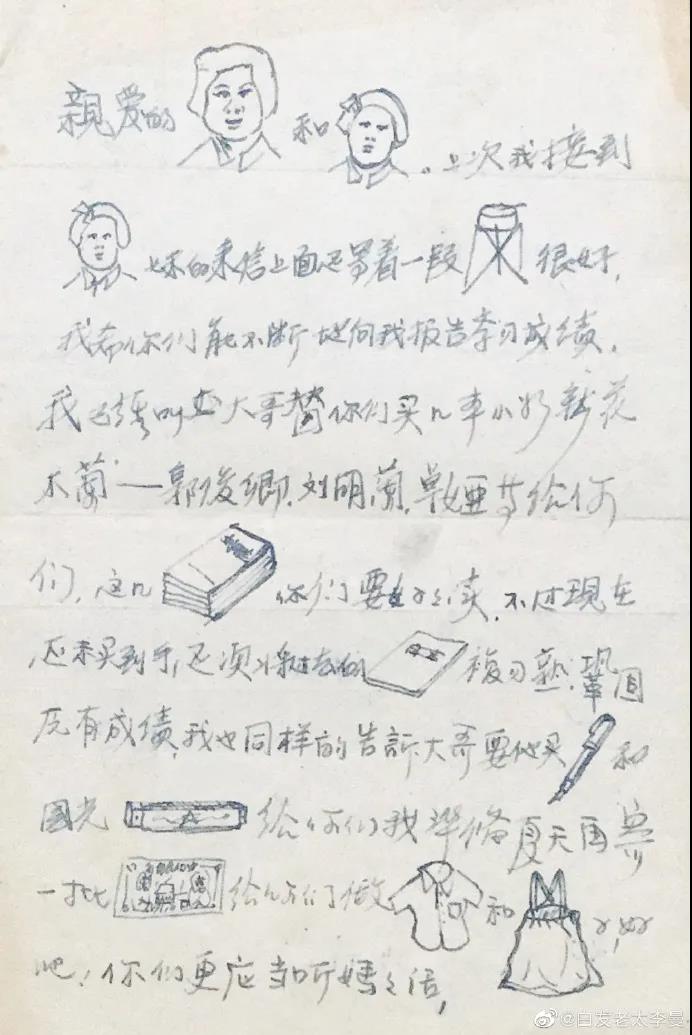 亲爱的 和 。上次我接到
妹的来信上面还写着一段 很好,
我希你们能不断地向我报告学习成绩.
我已经叫 大哥替你们买几本小 花
木蘭——郭俊卿.刘明蘭. 等给你
们.这几 你们要好好读.不过现在
还未买到手,还须将过去的 複习熟.鞏固
原有成绩,我也同样的告訴大哥要他买 和
國光 给你们我準备夏天再寄
一批 给你们做 和 ,好
吧!你们更应当听媽媽话,
@白发老太李曼